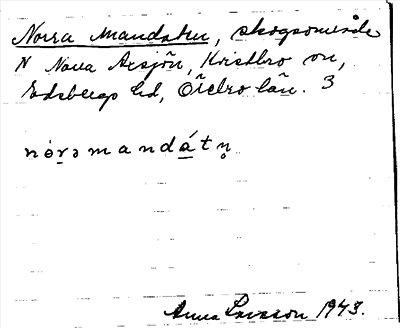 Norra Mandaten, skogsområde
N Norra Axsjön, Kvistbro sn,
Edsbergs hd, Örebro län. 3
nȯrəmandátn̥
Anna Larsson 1943.